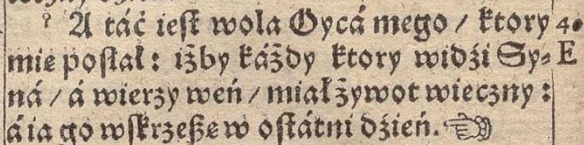 ? A táć ieſt wola Oycá mego / ktory 4.
mie poſłał: iżby káżdy ktory widźi Sy⸗ E
ná / á wierzy weń / miał żywot wieczny:
á ia go wſkrzeßę w oſtátni dźień. ☜